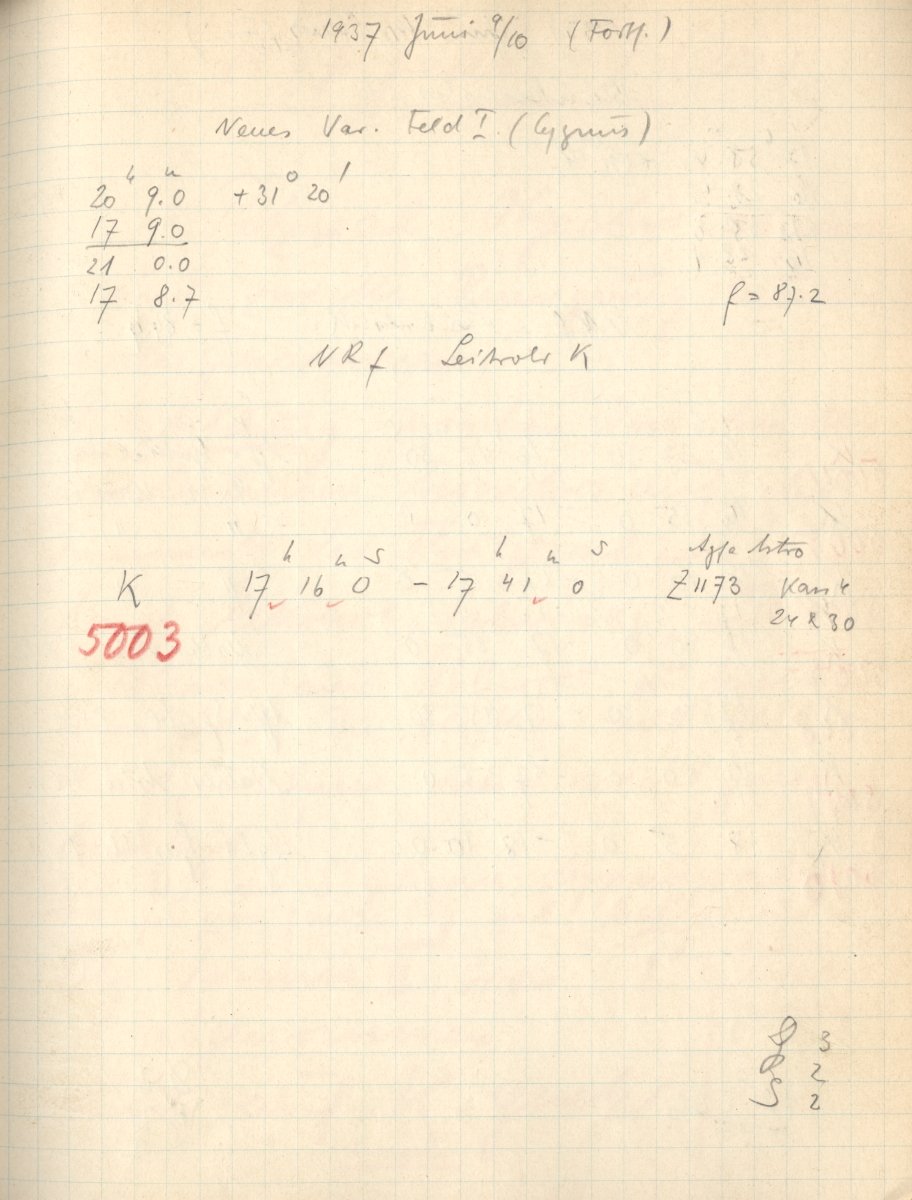 1937 Juni 9/10 (Forts.)
Neues Var. Feld I. (Cygnus)
20h 9.0m +31° 20'
17 9.0
21 0.0
17 8.7 f = 87.2
NRf Leitrohr K
K 17h 16m 0s – 17h 41m 0s Agfa Astro
Z 1173 Kass 4
5003 24 x 30
3
2
2